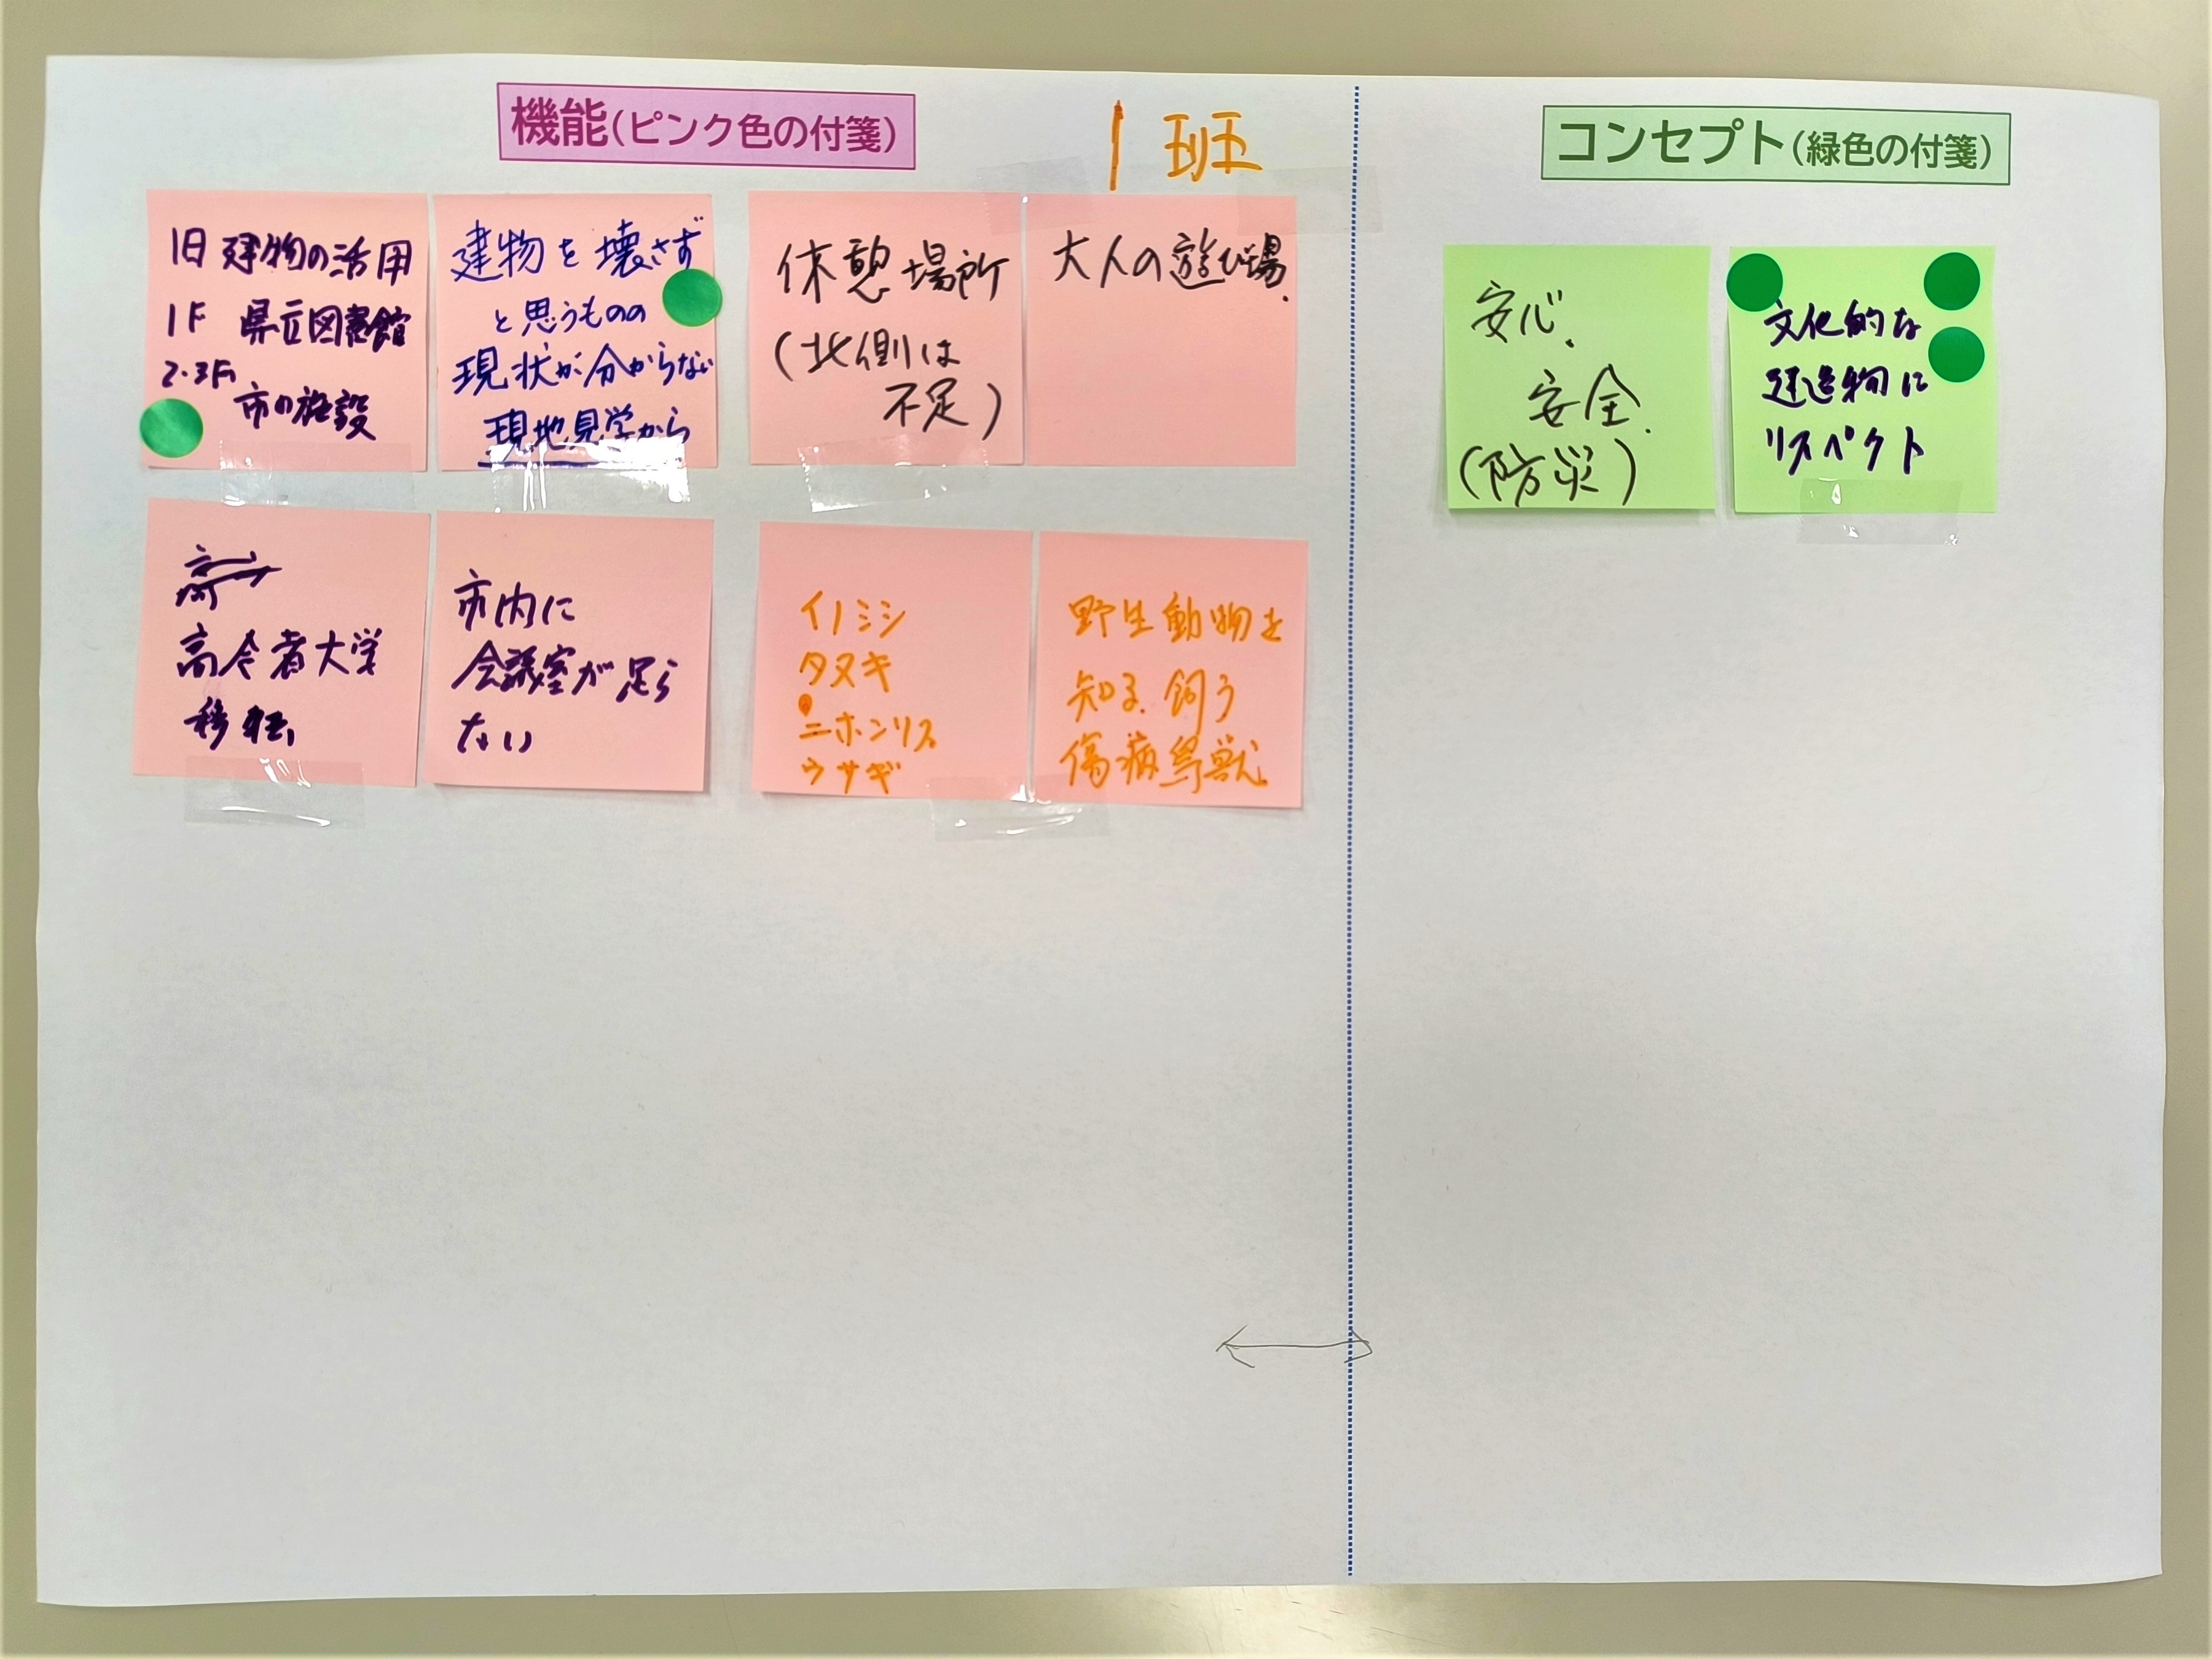 機能(ピンク色の付箋)
1 班
コンセプト(緑色の付箋)
旧建物の活用
1F 県立図書館
2・3F
市の施設
建物を壊さず
と思うものの
現状が分からない
現地見学から
休憩場所
(北側は
不足)
大人の遊び場.
安心.
安全.
(防災)
文化的な
建造物に
リスペクト
高令者大学
移転
市内に
会議室が足ら
ない
イノシシ
タヌキ
ニホンリス
ウサギ
野生動物を
知る. 飼う
傷病鳥獣